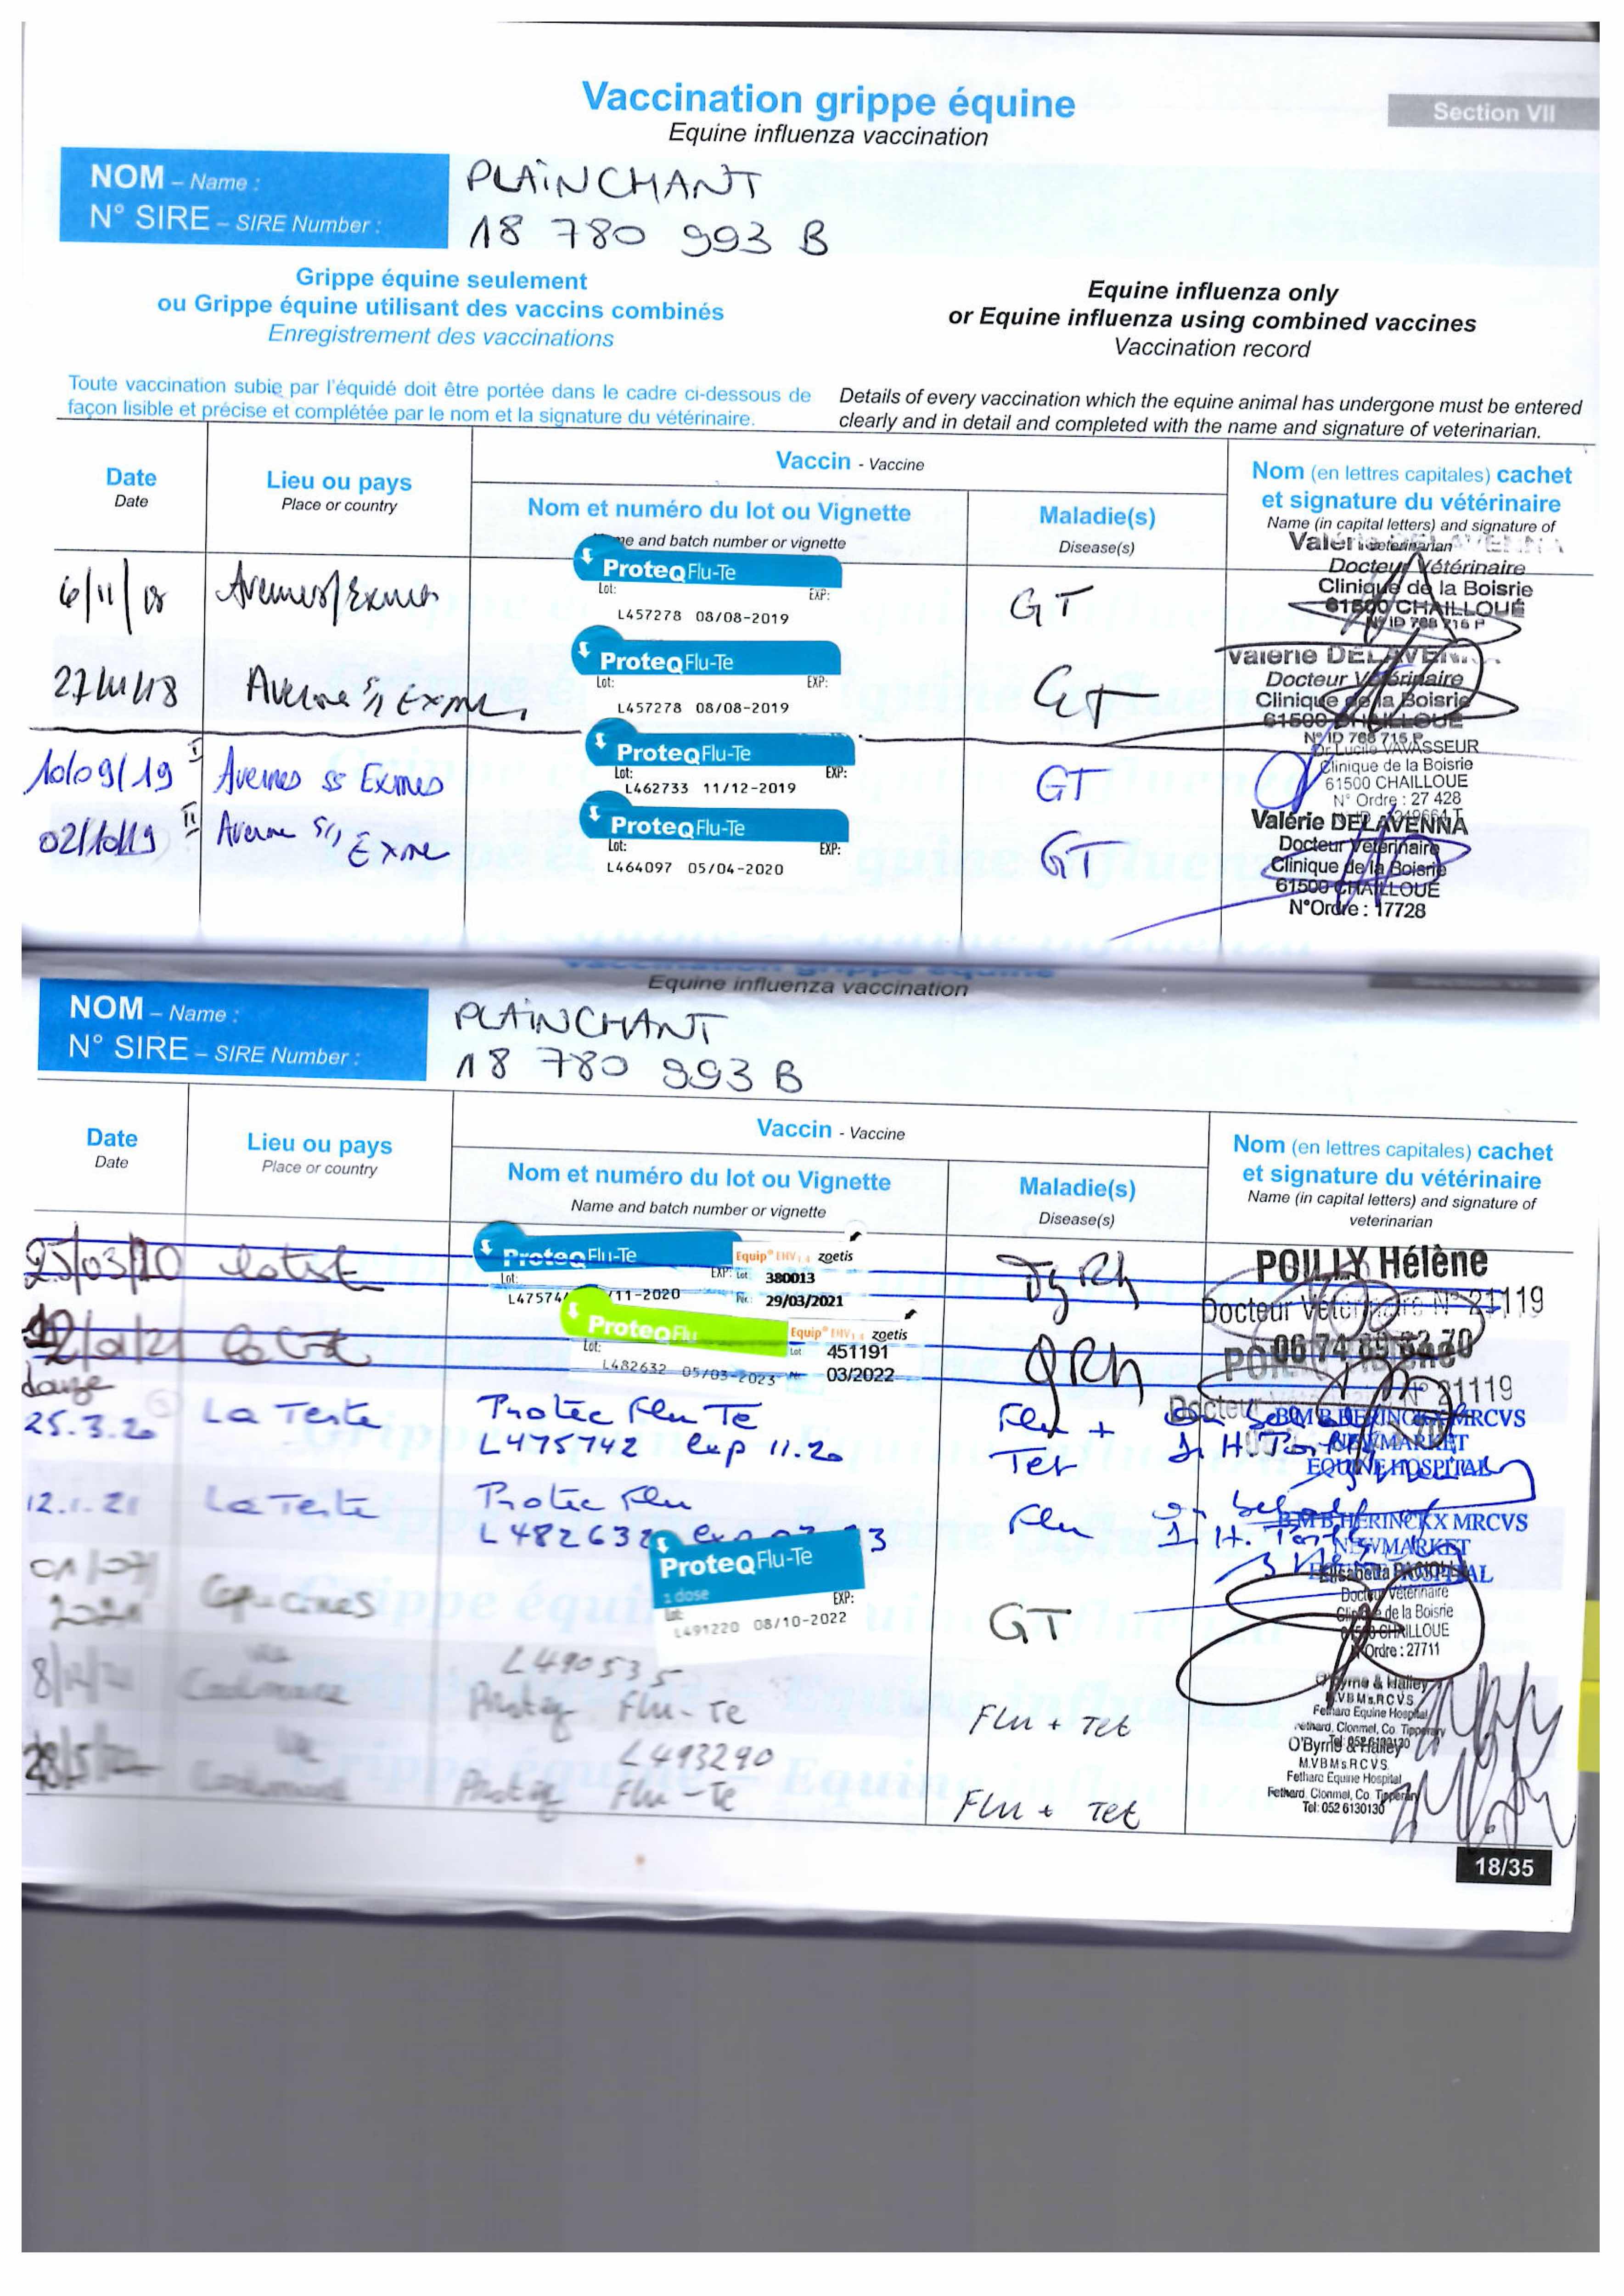 Vaccination grippe équine
Equine influenza vaccination
Section VII
NOM – Name :
PLAINCHANT
N° SIRE – SIRE Number :
18 780 993 B
Grippe équine seulement
ou Grippe équine utilisant des vaccins combinés
Enregistrement des vaccinations
Equine influenza only
or Equine influenza using combined vaccines
Vaccination record
Toute vaccination subie par l'équidé doit être portée dans le cadre ci-dessous de
façon lisible et précise et complétée par le nom et la signature du vétérinaire.
Details of every vaccination which the equine animal has undergone must be entered
clearly and in detail and completed with the name and signature of veterinarian.
Date
Date
Lieu ou pays
Place or country
Vaccin - Vaccine
Nom et numéro du lot ou Vignette
and batch number or vignette
Maladie(s)
Disease(s)
Nom (en lettres capitales) cachet
et signature du vétérinaire
Name (in capital letters) and signature of
veterinarian
6/11/18
Avernes/Exmes
ProteqFlu-Te
Lot: EXP:
L457278 08/08-2019
GT
Docteur Vétérinaire
Clinique de la Boisrie
61500 CHAILLOUÉ
N° ID 768 715 P
27/11/18
ProteqFlu-Te
Lot: EXP:
L457278 08/08-2019
GT
Valérie DELAVENNA
Docteur Vétérinaire
Clinique de la Boisrie
61500 CHAILLOUÉ
N° ID 768 715 P
10/09/19 I
Avernes ss Exmes
ProteqFlu-Te
Lot: EXP:
L462733 11/12-2019
GT
Dr Lucile VAVASSEUR
Clinique de la Boisrie
61500 CHAILLOUE
N° Ordre : 27 428
02/10/19 II
ProteqFlu-Te
Lot: EXP:
L464097 05/04-2020
GT
Valérie DELAVENNA
Docteur Vétérinaire
Clinique de la Boisrie
61500 CHAILLOUÉ
N°Ordre : 17728
Equine influenza vaccination
NOM – Name :
PLAINCHANT
N° SIRE – SIRE Number :
18 780 993 B
Date
Date
Lieu ou pays
Place or country
Vaccin - Vaccine
Nom et numéro du lot ou Vignette
Name and batch number or vignette
Maladie(s)
Disease(s)
Nom (en lettres capitales) cachet
et signature du vétérinaire
Name (in capital letters) and signature of
veterinarian
25/03/20
ProteqFlu-Te
Lot: EXP:
11-2020
Equip® EHV 1,4 zoetis
Lot 380013
29/03/2021
POUILLY Hélène
Docteur Vétérinaire N° 21119
12/01/21
douze
ProteqFlu
Lot:
L482632 05/03-2023
Equip® EHV 1,4 zoetis
Lot 451191
03/2022
GRh
N° 21119
25.3.20
La Teste
Protec Flu Te
L475742 exp 11.20
Flu +
Tet
on behalf
B M B HERINCKX MRCVS
NEWMARKET
EQUINE HOSPITAL
12.1.21
La Teste
Protec Flu
L482632
Flu
on behalf
B M B HERINCKX MRCVS
NEWMARKET
01/07/
2021
ProteqFlu-Te
1 dose
EXP:
L491220 08/10-2022
GT
Docteur Vétérinaire
Clinique de la Boisrie
61500 CHAILLOUE
N° Ordre : 27711
L490535
Proteq Flu-Te
Flu + Tet
O'Byrne & Halley
M.V.B Ms.R.C.V.S.
Fethard Equine Hospital,
Fethard, Clonmel, Co. Tipperary
L493290
Proteq Flu-Te
Flu + Tet
O'Byrne & Halley
M.V.B Ms.R.C.V.S.
Fethard Equine Hospital
Fethard, Clonmel, Co. Tipperary
Tel: 052 6130130
18/35